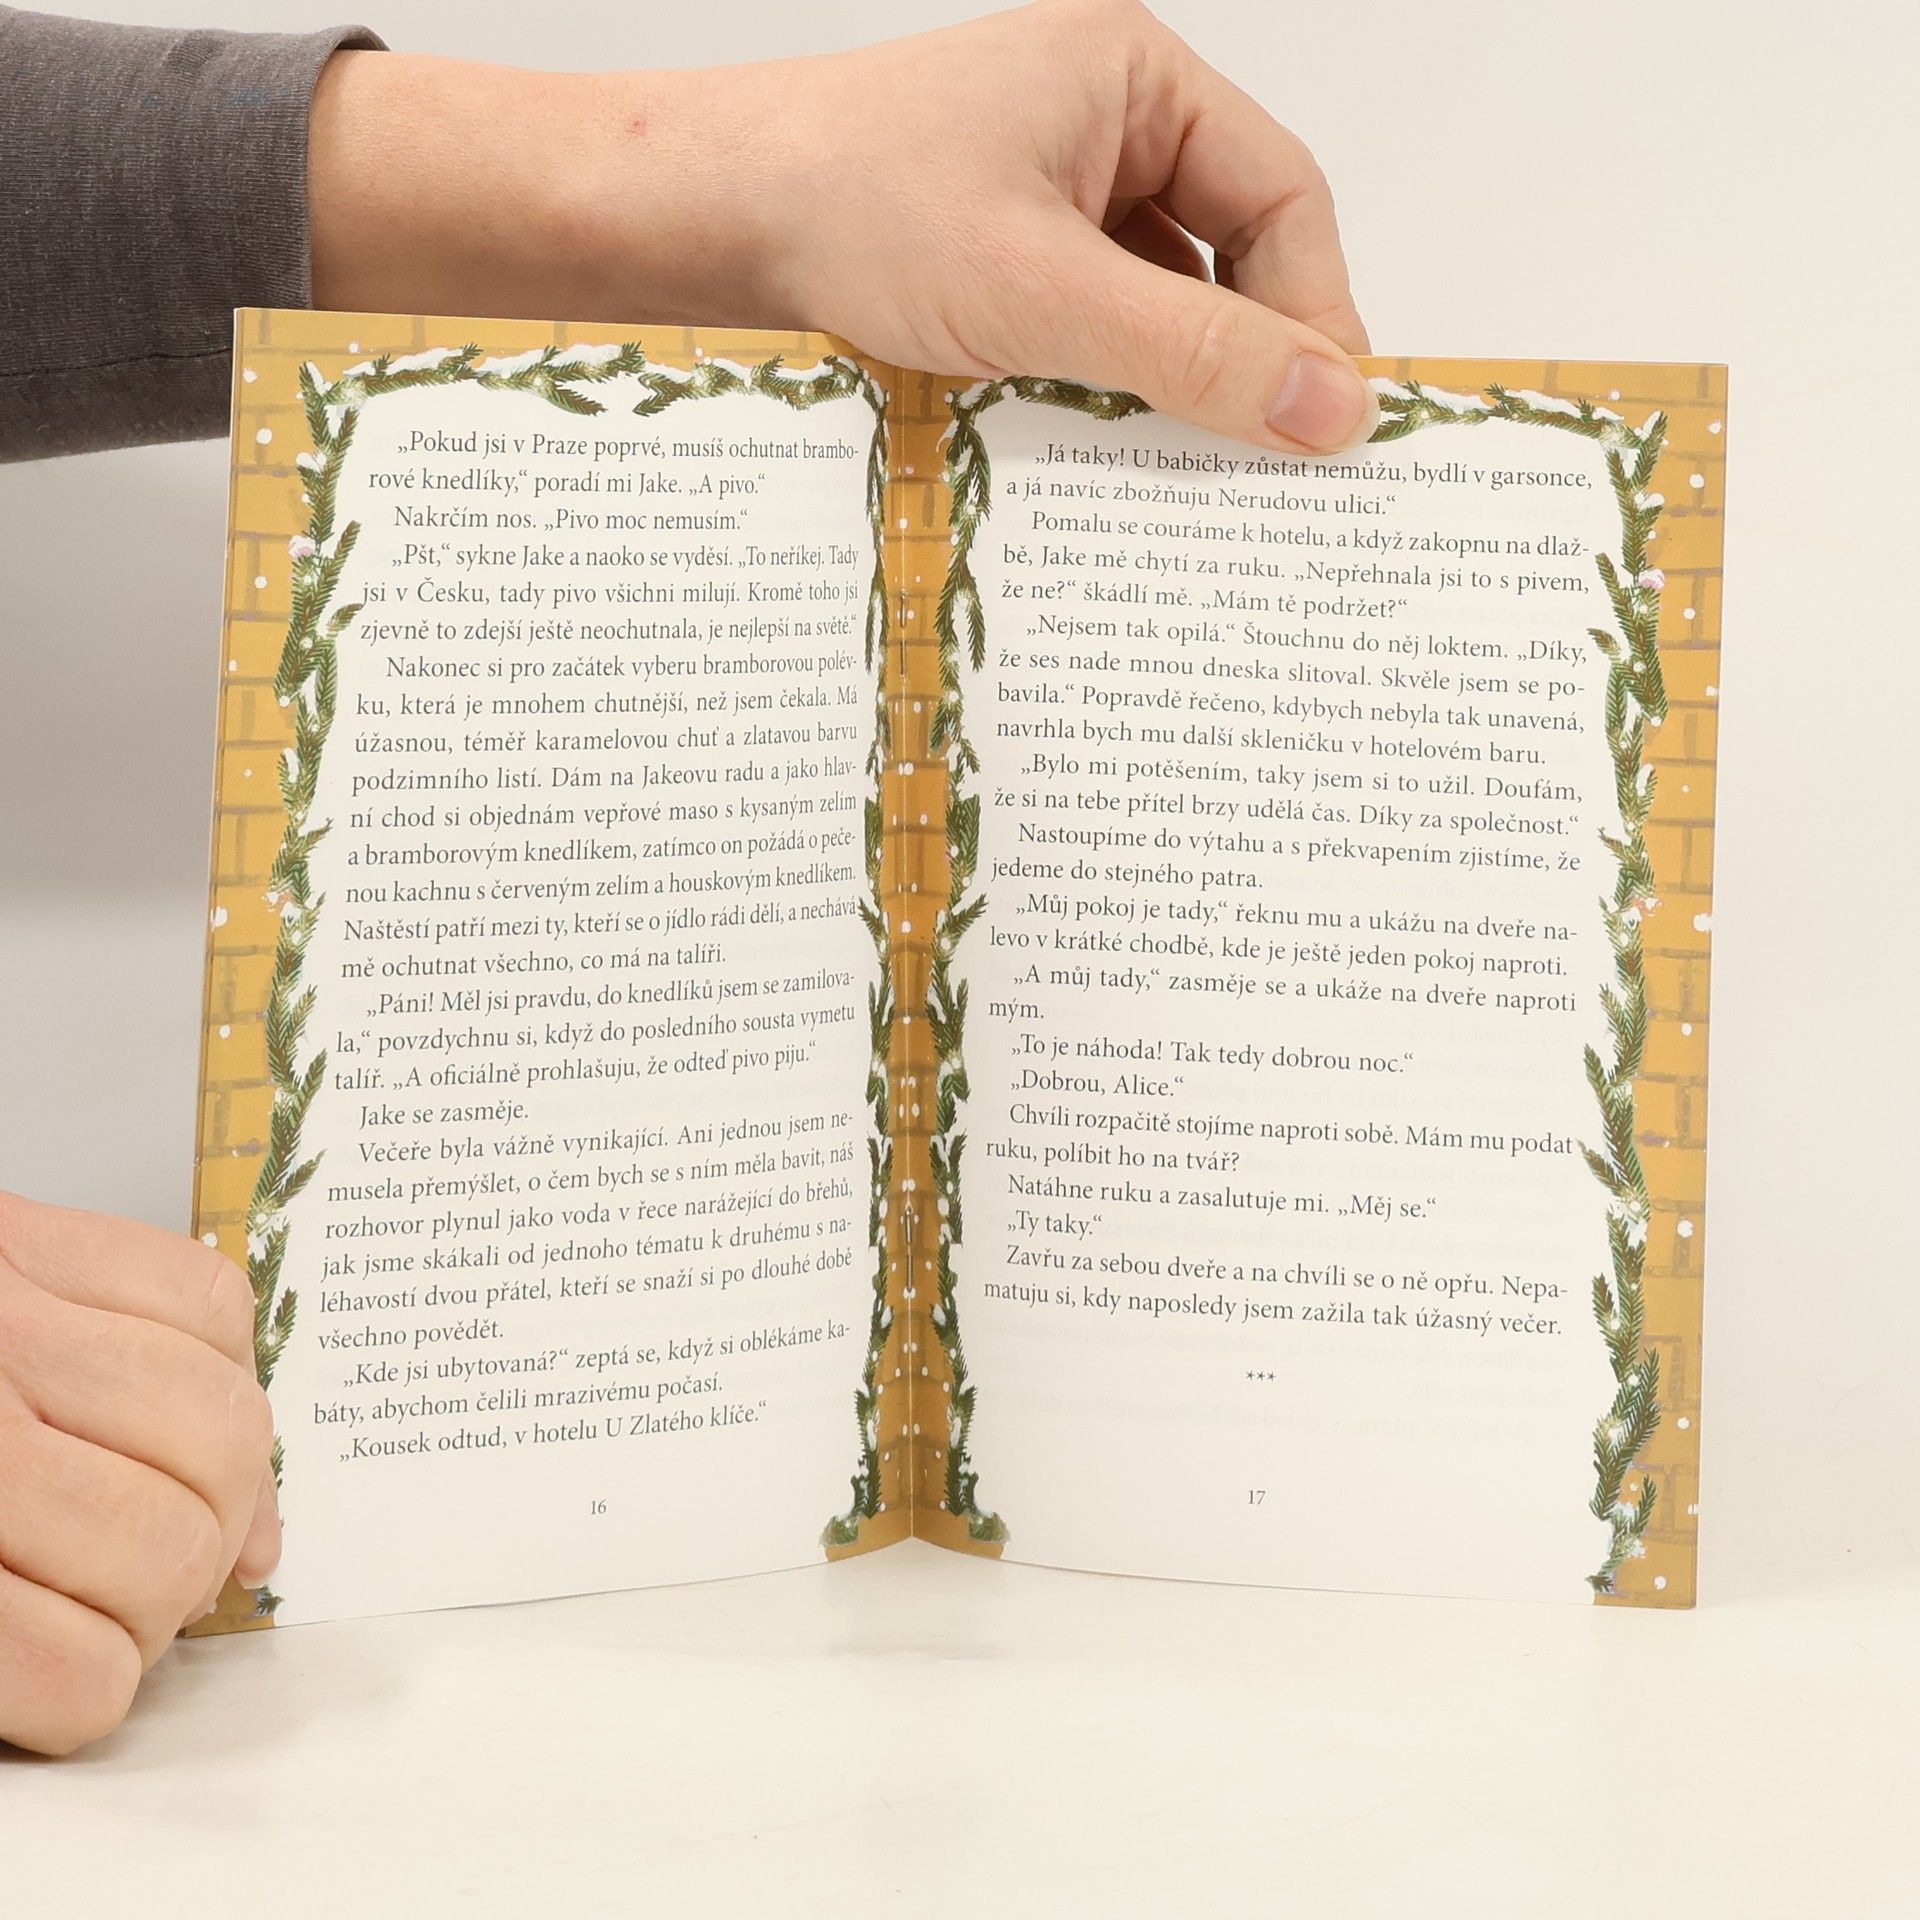 „Pokud jsi v Praze poprvé, musíš ochutnat brambo-
rové knedlíky,“ poradí mi Jake. „A pivo.“
Nakrčím nos. „Pivo moc nemusím.“
„Pšt,“ sykne Jake a naoko se vyděsí. „To neříkej. Tady
jsi v Česku, tady pivo všichni milují. Kromě toho jsi
zjevně to zdejší ještě neochutnala, je nejlepší na světě.“
Nakonec si pro začátek vyberu bramborovou polév-
ku, která je mnohem chutnější, než jsem čekala. Má
úžasnou, téměř karamelovou chuť a zlatavou barvu
podzimního listí. Dám na Jakeovu radu a jako hlav-
ní chod si objednám vepřové maso s kysaným zelím
a bramborovým knedlíkem, zatímco on požádá o peče-
nou kachnu s červeným zelím a houskovým knedlíkem.
Naštěstí patří mezi ty, kteří se o jídlo rádi dělí, a nechává
mě ochutnat všechno, co má na talíři.
„Páni! Měl jsi pravdu, do knedlíků jsem se zamilova-
la,“ povzdychnu si, když do posledního sousta vymetu
talíř. „A oficiálně prohlašuju, že odteď pivo piju.“
Jake se zasměje.
Večeře byla vážně vynikající. Ani jednou jsem ne-
musela přemýšlet, o čem bych se s ním měla bavit, náš
rozhovor plynul jako voda v řece narážející do břehů,
jak jsme skákali od jednoho tématu k druhému s na-
léhavostí dvou přátel, kteří se snaží si po dlouhé době
všechno povědět.
„Kde jsi ubytovaná?“ zeptá se, když si oblékáme ka-
báty, abychom čelili mrazivému počasí.
„Kousek odtud, v hotelu U Zlatého klíče.“
16
„Já taky! U babičky zůstat nemůžu, bydlí v garsonce,
a já navíc zbožňuju Nerudovu ulici.“
Pomalu se couráme k hotelu, a když zakopnu na dlaž-
bě, Jake mě chytí za ruku. „Nepřehnala jsi to s pivem,
že ne?“ škádlí mě. „Mám tě podržet?“
„Nejsem tak opilá.“ Štouchnu do něj loktem. „Díky,
že ses nade mnou dneska slitoval. Skvěle jsem se po-
bavila.“ Popravdě řečeno, kdybych nebyla tak unavená,
navrhla bych mu další skleničku v hotelovém baru.
„Bylo mi potěšením, taky jsem si to užil. Doufám,
že si na tebe přítel brzy udělá čas. Díky za společnost.“
Nastoupíme do výtahu a s překvapením zjistíme, že
jedeme do stejného patra.
„Můj pokoj je tady,“ řeknu mu a ukážu na dveře na-
levo v krátké chodbě, kde je ještě jeden pokoj naproti.
„A můj tady,“ zasměje se a ukáže na dveře naproti
mým.
„To je náhoda! Tak tedy dobrou noc.“
„Dobrou, Alice.“
Chvíli rozpačitě stojíme naproti sobě. Mám mu podat
ruku, políbit ho na tvář?
Natáhne ruku a zasalutuje mi. „Měj se.“
„Ty taky.“
Zavřu za sebou dveře a na chvíli se o ně opřu. Nepa-
matuju si, kdy naposledy jsem zažila tak úžasný večer.
***
17